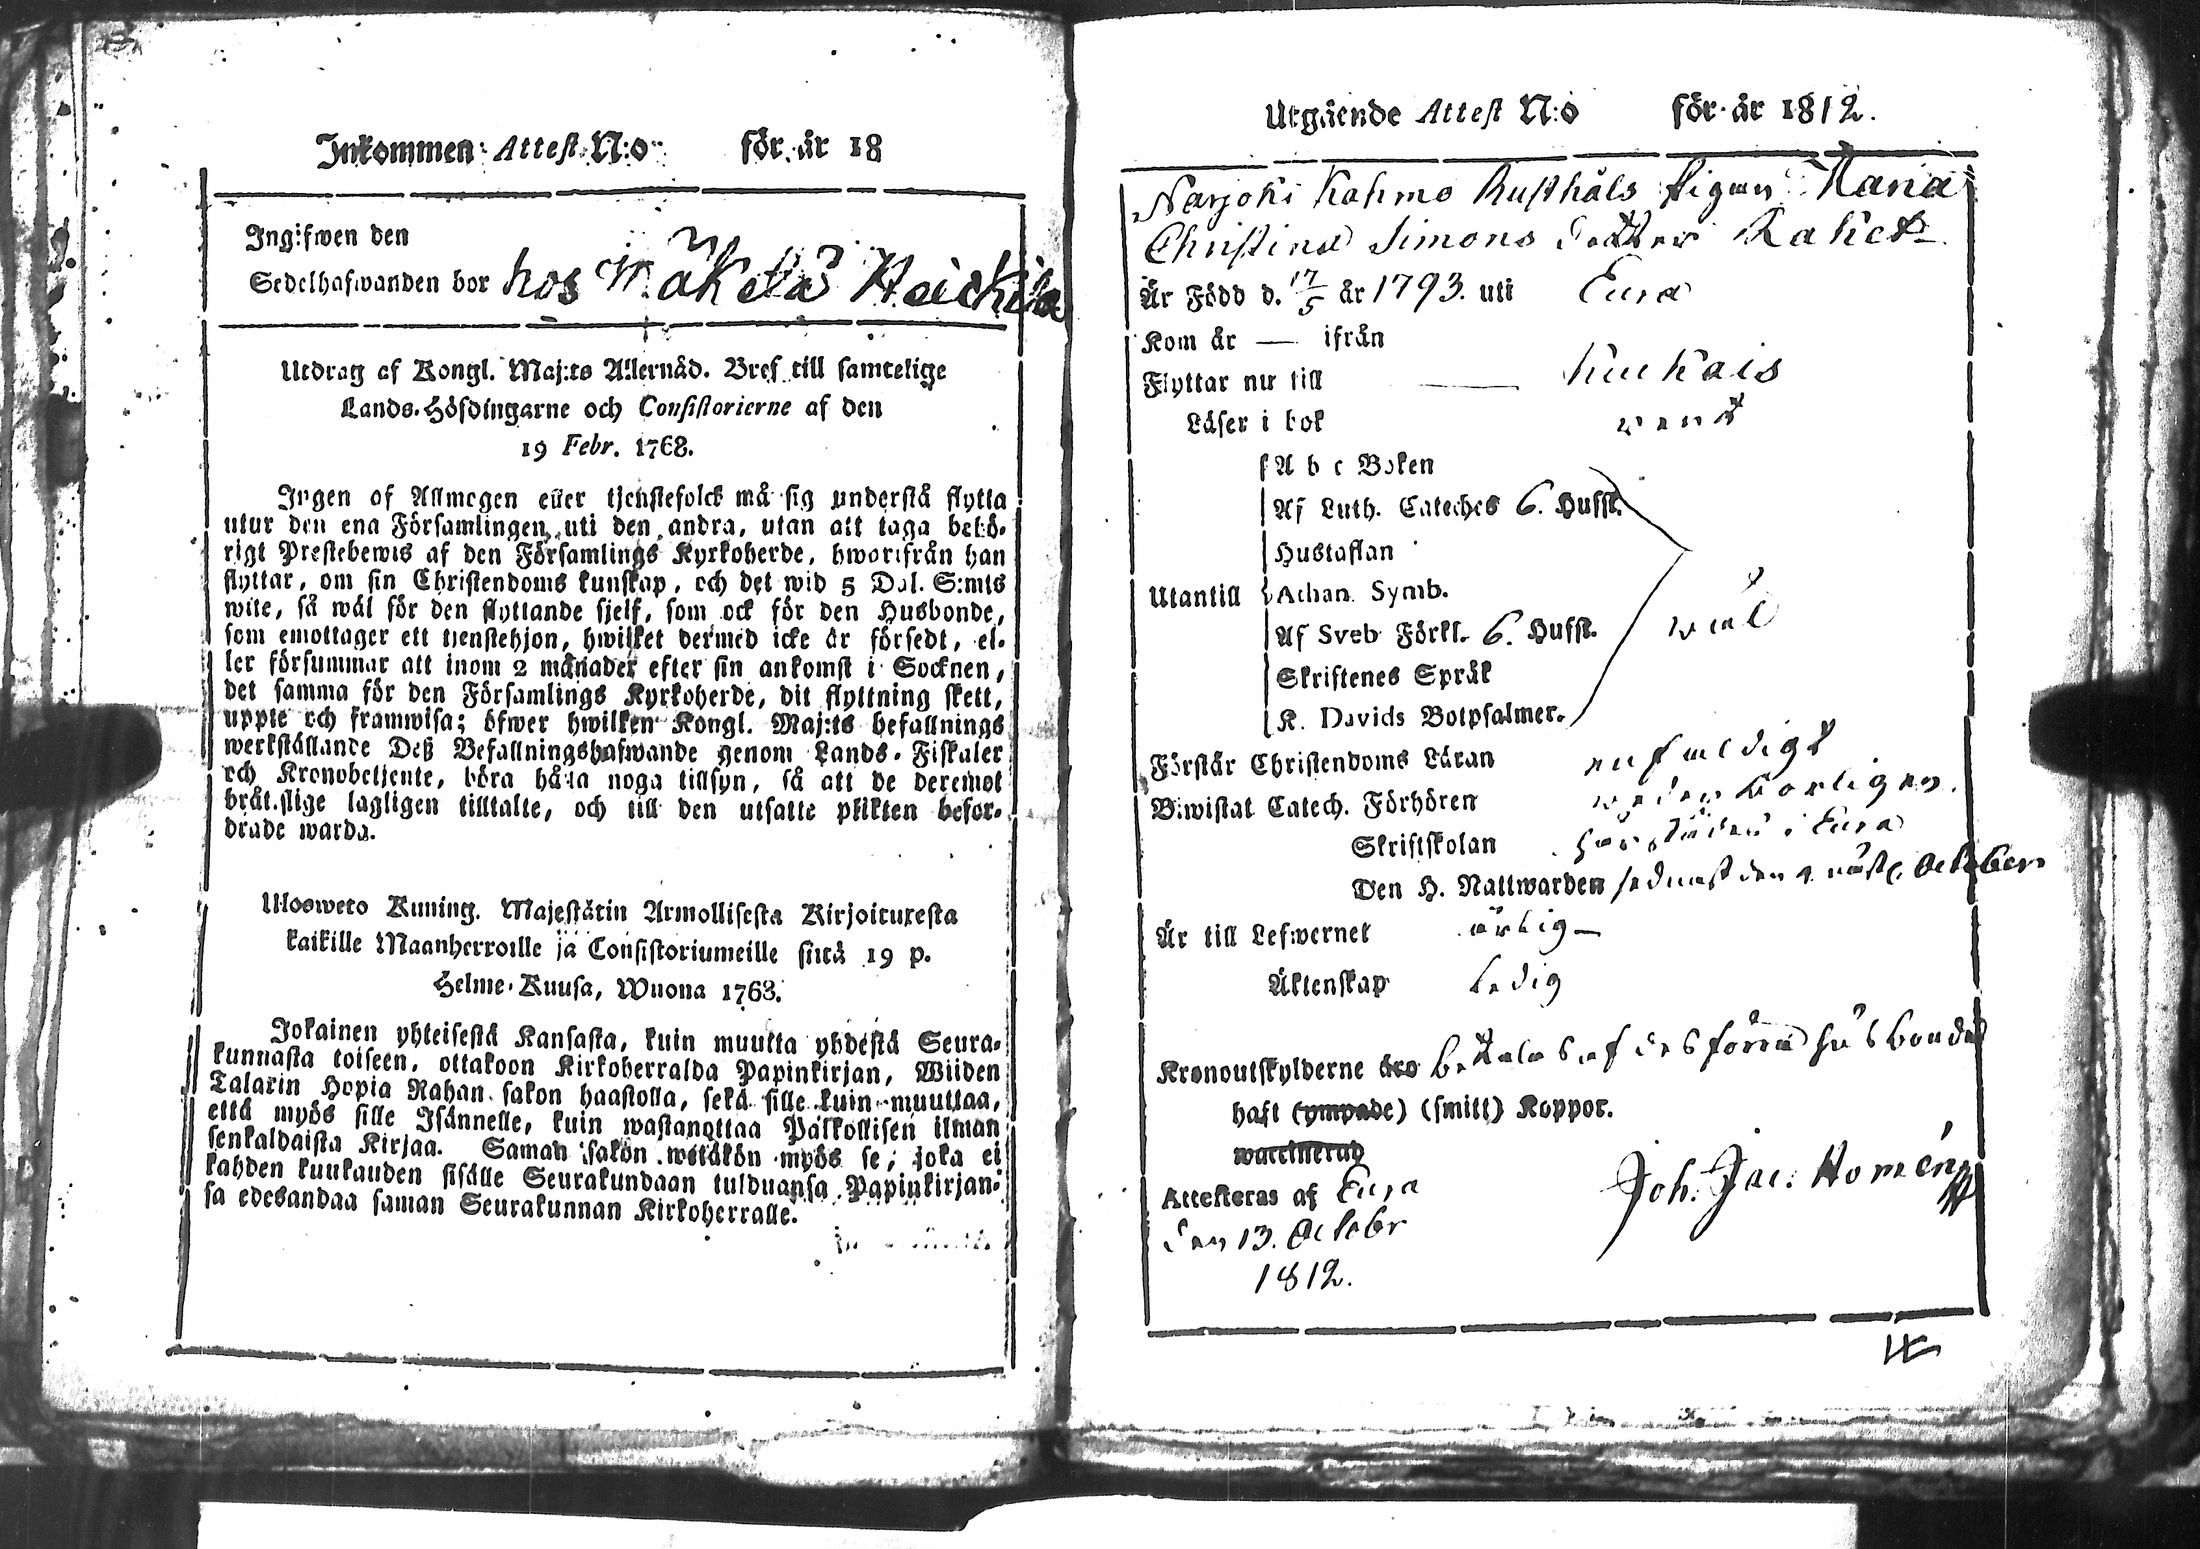 Inkommen Attest N:o för år 18
Ingifwen den
Sedelhafwanden bor hos Mäkelä Heickilä
Utdrag af Kongl. Maj:ts Allernåd. Bref till samtelige
Lands-Höfdingarne och Consistorierne af den
19 Febr. 1768.
Ingen af Allmogen eller tjenstefolck må sig understå flytta
utur den ena Församlingen uti den andra, utan att taga behö-
rigt Prestebewis af den Församlings Kyrkoherde, hwarifrån han
flyttar, om sin Christendoms kunskap, och det wid 5 Dal. S:mts
wite, så wäl för den flyttande sjelf, som ock för den Husbonde,
som emottager ett tjenstehjon, hwilket dermed icke är försedt, el-
ler försummar att inom 2 månader efter sin ankomst i Socknen,
det samma för den Församlings Kyrkoherde, dit flyttning skett,
uppte och framwisa; öfwer hwilken Kongl. Maj:ts befallnings
werkställande Deß Befallningshafwande genom Lands-Fiskaler
och Kronobetjente, böra hålla noga tillsyn, så att de deremot
bråtslige lagligen tilltalte, och till den utsatte plikten befor-
drade warda.
Ulosweto Kuning. Majestätin Armollisesta Kirjoituxesta
kaikille Maanherroille ja Consistoriumeille siitä 19 p.
Helme-Kuusa, Wuona 1763.
Jokainen yhteisestä Kansasta, kuin muutta yhdestä Seura-
kunnasta toiseen, ottakoon Kirkoherralda Papinkirjan, Wiiden
Talarin Hopia Rahan sakon haastolla, sekä sille kuin muuttaa,
että myös sille Isännelle, kuin wastanottaa Palkollisen ilman
senkaldaista Kirjaa. Saman sakon wetäkön myös se, joka ei
kahden kuukauden sisälle Seurakundaan tulduansa Papinkirjan-
sa edesandaa saman Seurakunnan Kirkoherralle.
Utgående Attest N:o för år 1812.
Narjoki Kahmo Rusthåls Pigan Maria
Christina Simons dotter
Är Född d. 17/5 år 1793. uti Eura
Kom år — ifrån
Flyttar nu till — Kiukais
Läser i bok rent
A b c Boken
Af Luth. Cateches 6. Hufst.
Hustaflan
Utantill Athan. Symb.
Af Sveb Förkl. 6. Hufst. wäl
Skriftenes Språk
K. Davids Botpsalmer.
Förstår Christendoms Läran enfaldigt
Biwistat Catech. Förhören wederbörligen.
Skriftskolan härstädes i Eura
Den H. Nattwarden sednast den 4 October
Är till Lefwernet ärlig —
Äktenskap ledig
Kronoutskylderne äro betalas af des förra husbonde
haft (ympade) (smitt) Koppor.
waccinerad
Attesteras af Eura Joh. Jac. Homén
den 13. Octobr
1812.